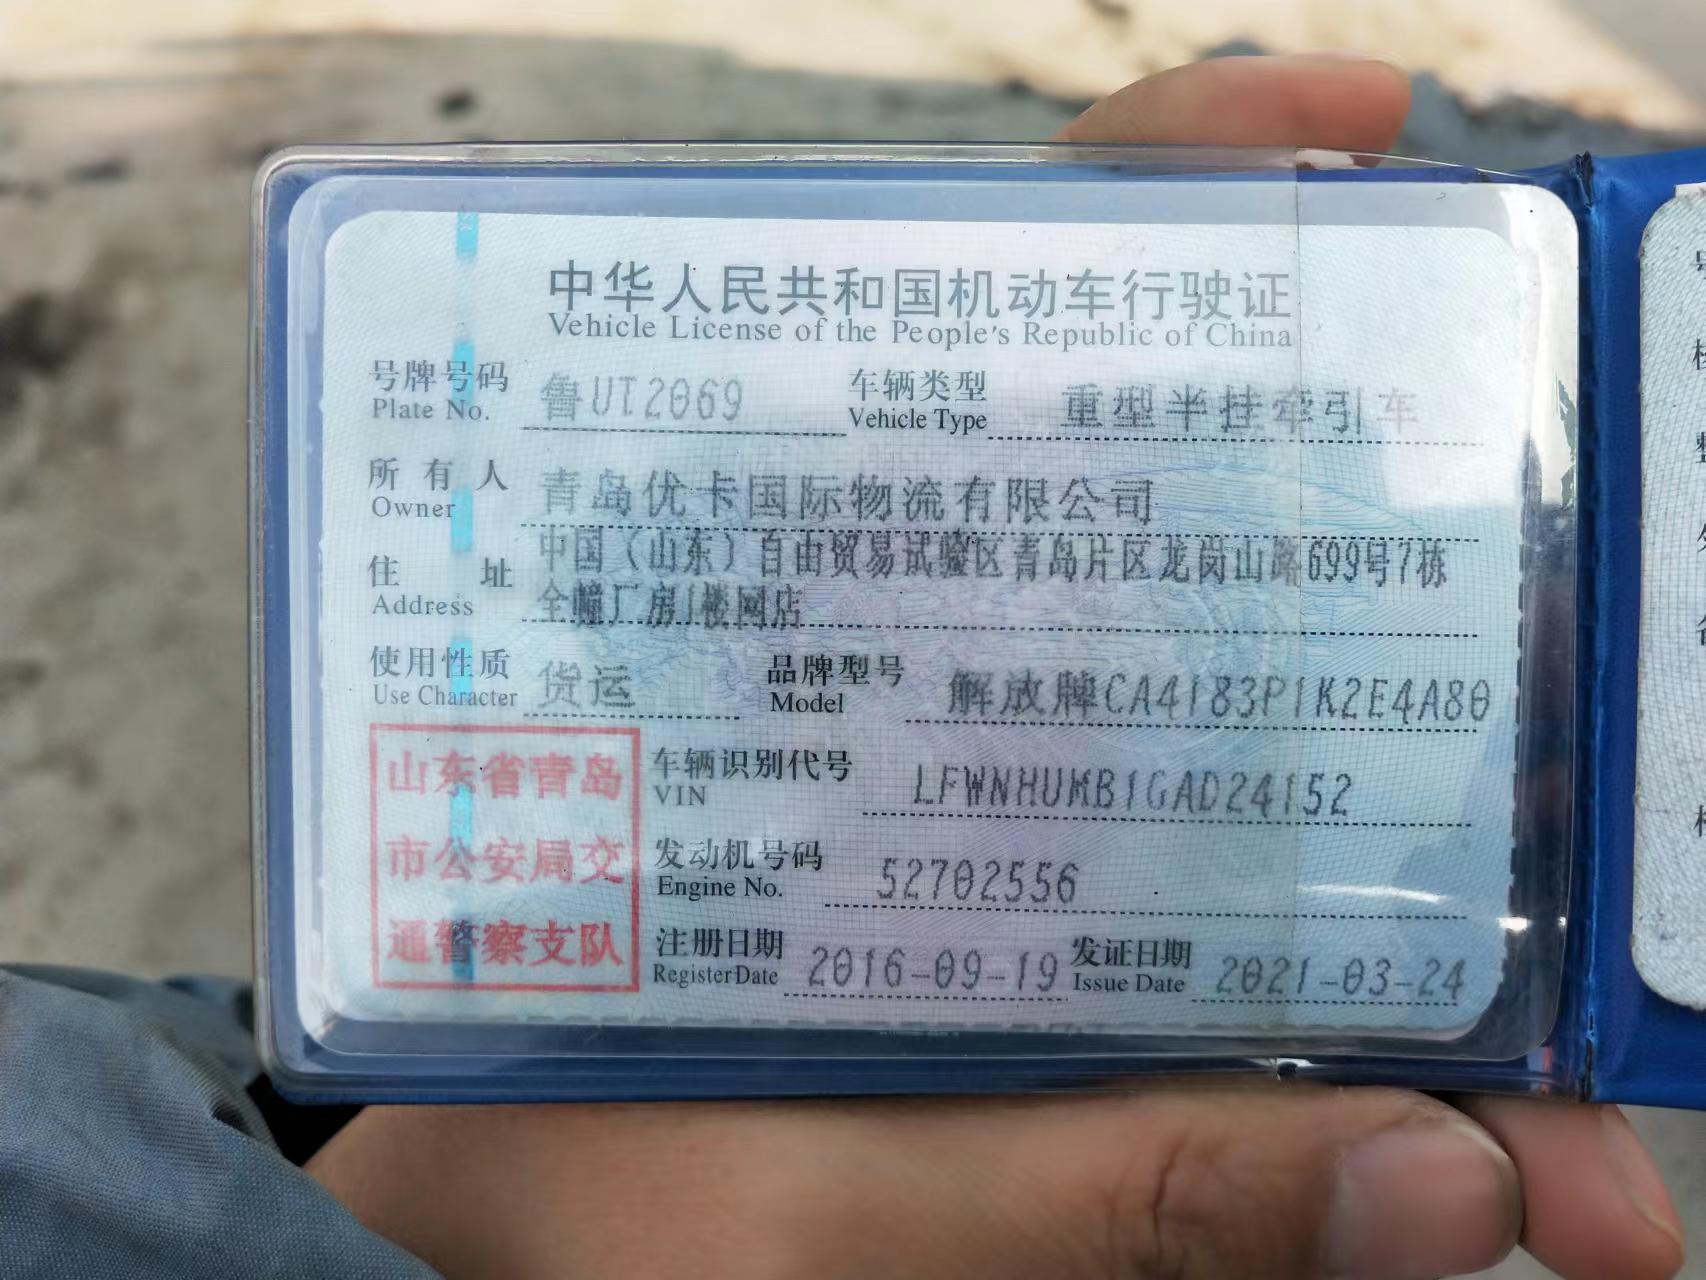 中华人民共和国机动车行驶证
Vehicle License of the People's Republic of China
号牌号码 鲁UT2069 车辆类型 重型半挂牵引车
Plate No. Vehicle Type
所有人 青岛优卡国际物流有限公司
Owner
住址 中国（山东）自由贸易试验区青岛片区龙岗山路699号7栋
Address 全幢厂房1楼网店
使用性质 货运 品牌型号 解放牌CA4183P1K2E4A80
Use Character Model
山东省青岛
市公安局交
通警察支队
车辆识别代号 LFWNHUMB1GAD24152
VIN
发动机号码 52702556
Engine No.
注册日期 2016-09-19 发证日期 2021-03-24
Register Date Issue Date